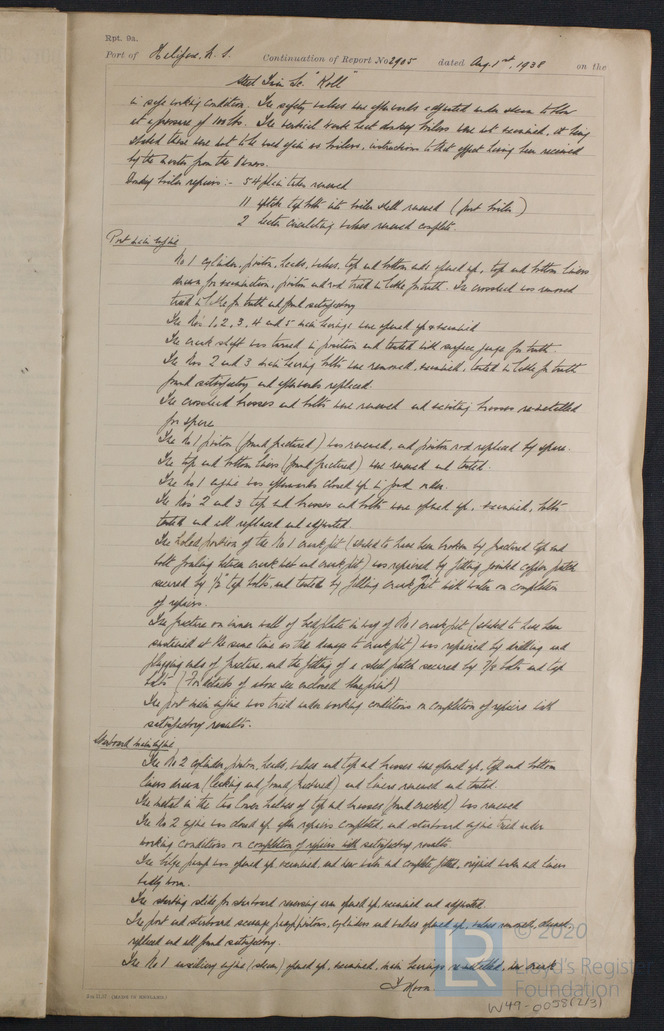 Rpt. 9a.
Port of Halifax, N. S. Continuation of Report No 2905 dated Aug. 1st, 1938 on the
Steel Twin Sc. "Koll"
in safe working condition. The safety valves were afterwards adjusted under steam to blow
at a pressure of 100 lbs. The vertical waste heat donkey boilers were not examined, it being
stated these were not to be used again as boilers, instructions to that effect having been received
by the master from the Owners.
Donkey boiler repairs:- 54 plain tubes renewed
11 uptake tap bolts into boiler shell renewed (port boiler)
2 circulating valves renewed complete.
Port main engine
No 1 cylinder, piston, heads, valves, top and bottom ends opened up, top and bottom liners
drawn for examination, piston and rod tried in lathe for truth. The crosshead was removed
tried in lathe for truth and found satisfactory
The Nos 1, 2, 3, 4 and 5 main bearings were opened up & examined
The crank shaft was turned in position and tested with surface gauge for truth.
The Nos 2 and 3 main bearing bolts were removed, examined, tested in lathe for truth
found satisfactory and afterwards replaced.
The crosshead brasses and bolts were renewed and existing brasses remetalled
for spare
The No 1 piston (found fractured) was renewed, and piston rod replaced by spare.
The top and bottom liners (found fractured) were renewed and tested.
The No 1 engine was afterwards closed up in good order.
The Nos 2 and 3 top end brasses and bolts were opened up, examined, bolts
tested and all replaced and adjusted
The holed portion of the No 1 crank pit (stated to have been broken by fractured top end
bolt fouling between crank web and crank pit) was repaired by fitting jointed copper patch
secured by 1/2" tap bolts, and tested by filling crank pit with water on completion
of repairs.
The fracture on inner wall of bedplate in way of No 1 crank pit (stated to have been
sustained at the same time as the damage to crank pit) was repaired by drilling and
plugging ends of fracture, and the fitting of a steel patch secured by 7/8 bolts and tap
bolts (For details of above see enclosed blue print)
The port main engine was tried under working conditions on completion of repairs with
satisfactory results.
Starboard main engine
The No 2 cylinder, piston, heads, valves and top end brasses were opened up, top and bottom
liners drawn (leaking and found fractured) and liners renewed and tested.
The metal in the two lower halves of top end brasses (found cracked) was renewed
The No 2 engine was closed up after repairs completed, and starboard engine tried under
working conditions on completion of repairs with satisfactory results.
The bilge pump was opened up examined and new and complete fitted, original and liners
badly worn.
The starting slide for starboard reversing opened up, examined and adjusted
The port and starboard scavenge pump pistons, cylinders and valves opened up, valves removed, cleaned
replaced and all found satisfactory.
The No 1 auxiliary engine (steam) opened up, examined, main bearings remetalled, new crank
Moore
© 2020
Lloyd's Register
Foundation
LR
W49-0058(2/3)